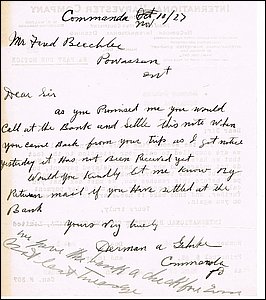 Commanda Oct 10/27
Nov
Mr Fred Beechler
Powassan
Ont
Dear Sir
as you Promised me you would
Call at the Bank and Settle this note when
you Came Back from your trip as I got notice
yesterday it Has not Been Received yet
Would you Kindly let me know By
Return mail if you Have settled at the
Bank
Yours Very truly
Herman A
Commanda
We gave the bank a check for
last Tuesday